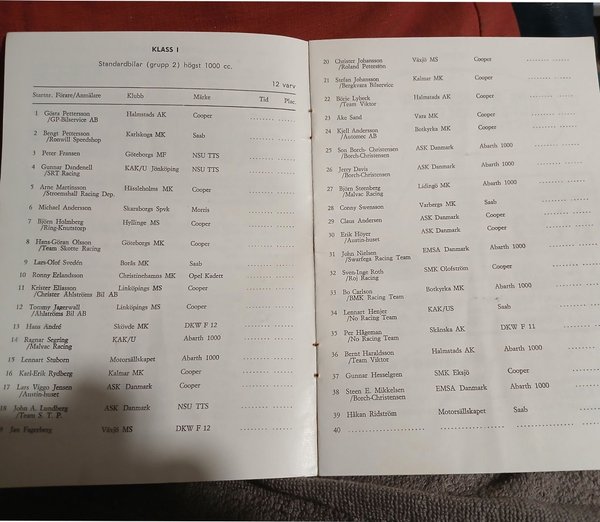 KLASS I
Standardbilar (grupp 2) högst 1000 cc.
12 varv
Startnr. Förare/Anmälare Klubb Märke Tid Plac.
1 Gösta Pettersson Halmstads AK Cooper
/GP-Bilservice AB
2 Bengt Pettersson Karlskoga MK Saab
/Ronwill Speedshop
3 Peter Fransen Göteborgs MF NSU TTS
4 Gunnar Dandenell KAK/U Jönköping NSU TTS
/SRT Racing
5 Arne Martinsson Hässleholms MK Cooper
/Stroemshall Racing Dep.
6 Michael Andersson Skaraborgs Spvk Morris
7 Björn Holmberg Hyllinge MS Cooper
/Ring-Knutstorp
8 Hans-Göran Olsson Göteborgs MK Cooper
/Team Skotte Racing
9 Lars-Olof Svedén Borås MK Saab
10 Ronny Erlandsson Christinehamns MK Opel Kadett
11 Krister Eliasson Linköpings MS Cooper
/Christer Ahlströms Bil AB
12 Tommy Jagerwall Linköpings MS Cooper
/Ahlströms Bil AB
13 Hans André Skövde MK DKW F 12
14 Ragnar Segring KAK/U Abarth 1000
/Malvac Racing
15 Lennart Stuborn Motorsällskapet Abarth 1000
16 Karl-Erik Rydberg Kalmar MK Cooper
17 Lars Viggo Jensen ASK Danmark Cooper
/Austin-huset
18 John A. Lundberg ASK Danmark NSU TTS
/Team S. T. P.
Jan Fagerberg Växjö MS DKW F 12
20 Christer Johansson Växjö MS Cooper
/Roland Petterston
21 Stefan Johansson Kalmar MK Cooper
/Bergkvara Bilservice
22 Börje Lybeck Halmstads AK Cooper
/Team Viktor
23 Åke Sand Vara MK Cooper
24 Kjell Andersson Botkyrka MK Cooper
/Automec AB
25 Son Borch-Christensen ASK Danmark Abarth 1000
/Borch-Christensen
26 Jerry Davis ASK Danmark Abarth 1000
/Borch-Christensen
27 Björn Steenberg Lidingö MK Abarth 1000
/Malvac Racing
28 Conny Swensson Varbergs MK Saab
29 Claus Andersen ASK Danmark Cooper
30 Erik Höyer ASK Danmark Cooper
/Austin-huset
31 John Nielsen EMSA Danmark Abarth 1000
/Swarfega Racing Team
32 Sven-Inge Roth SMK Olofström Cooper
/Roj Racing
33 Bo Carlson Botkyrka MK Abarth 1000
/BMK Racing Team
34 Lennart Henjer KAK/US Saab
/No Racing Team
35 Per Hägeman Skånska AK DKW F 11
/No Racing Team
36 Bernt Haraldsson Halmstads AK Abarth 1000
/Team Viktor
37 Gunnar Hesselgren SMK Eksjö Cooper
38 Steen E. Mikkelsen EMSA Danmark Abarth 1000
/Borch-Christensen
39 Håkan Ridström Motorsällskapet Saab
40